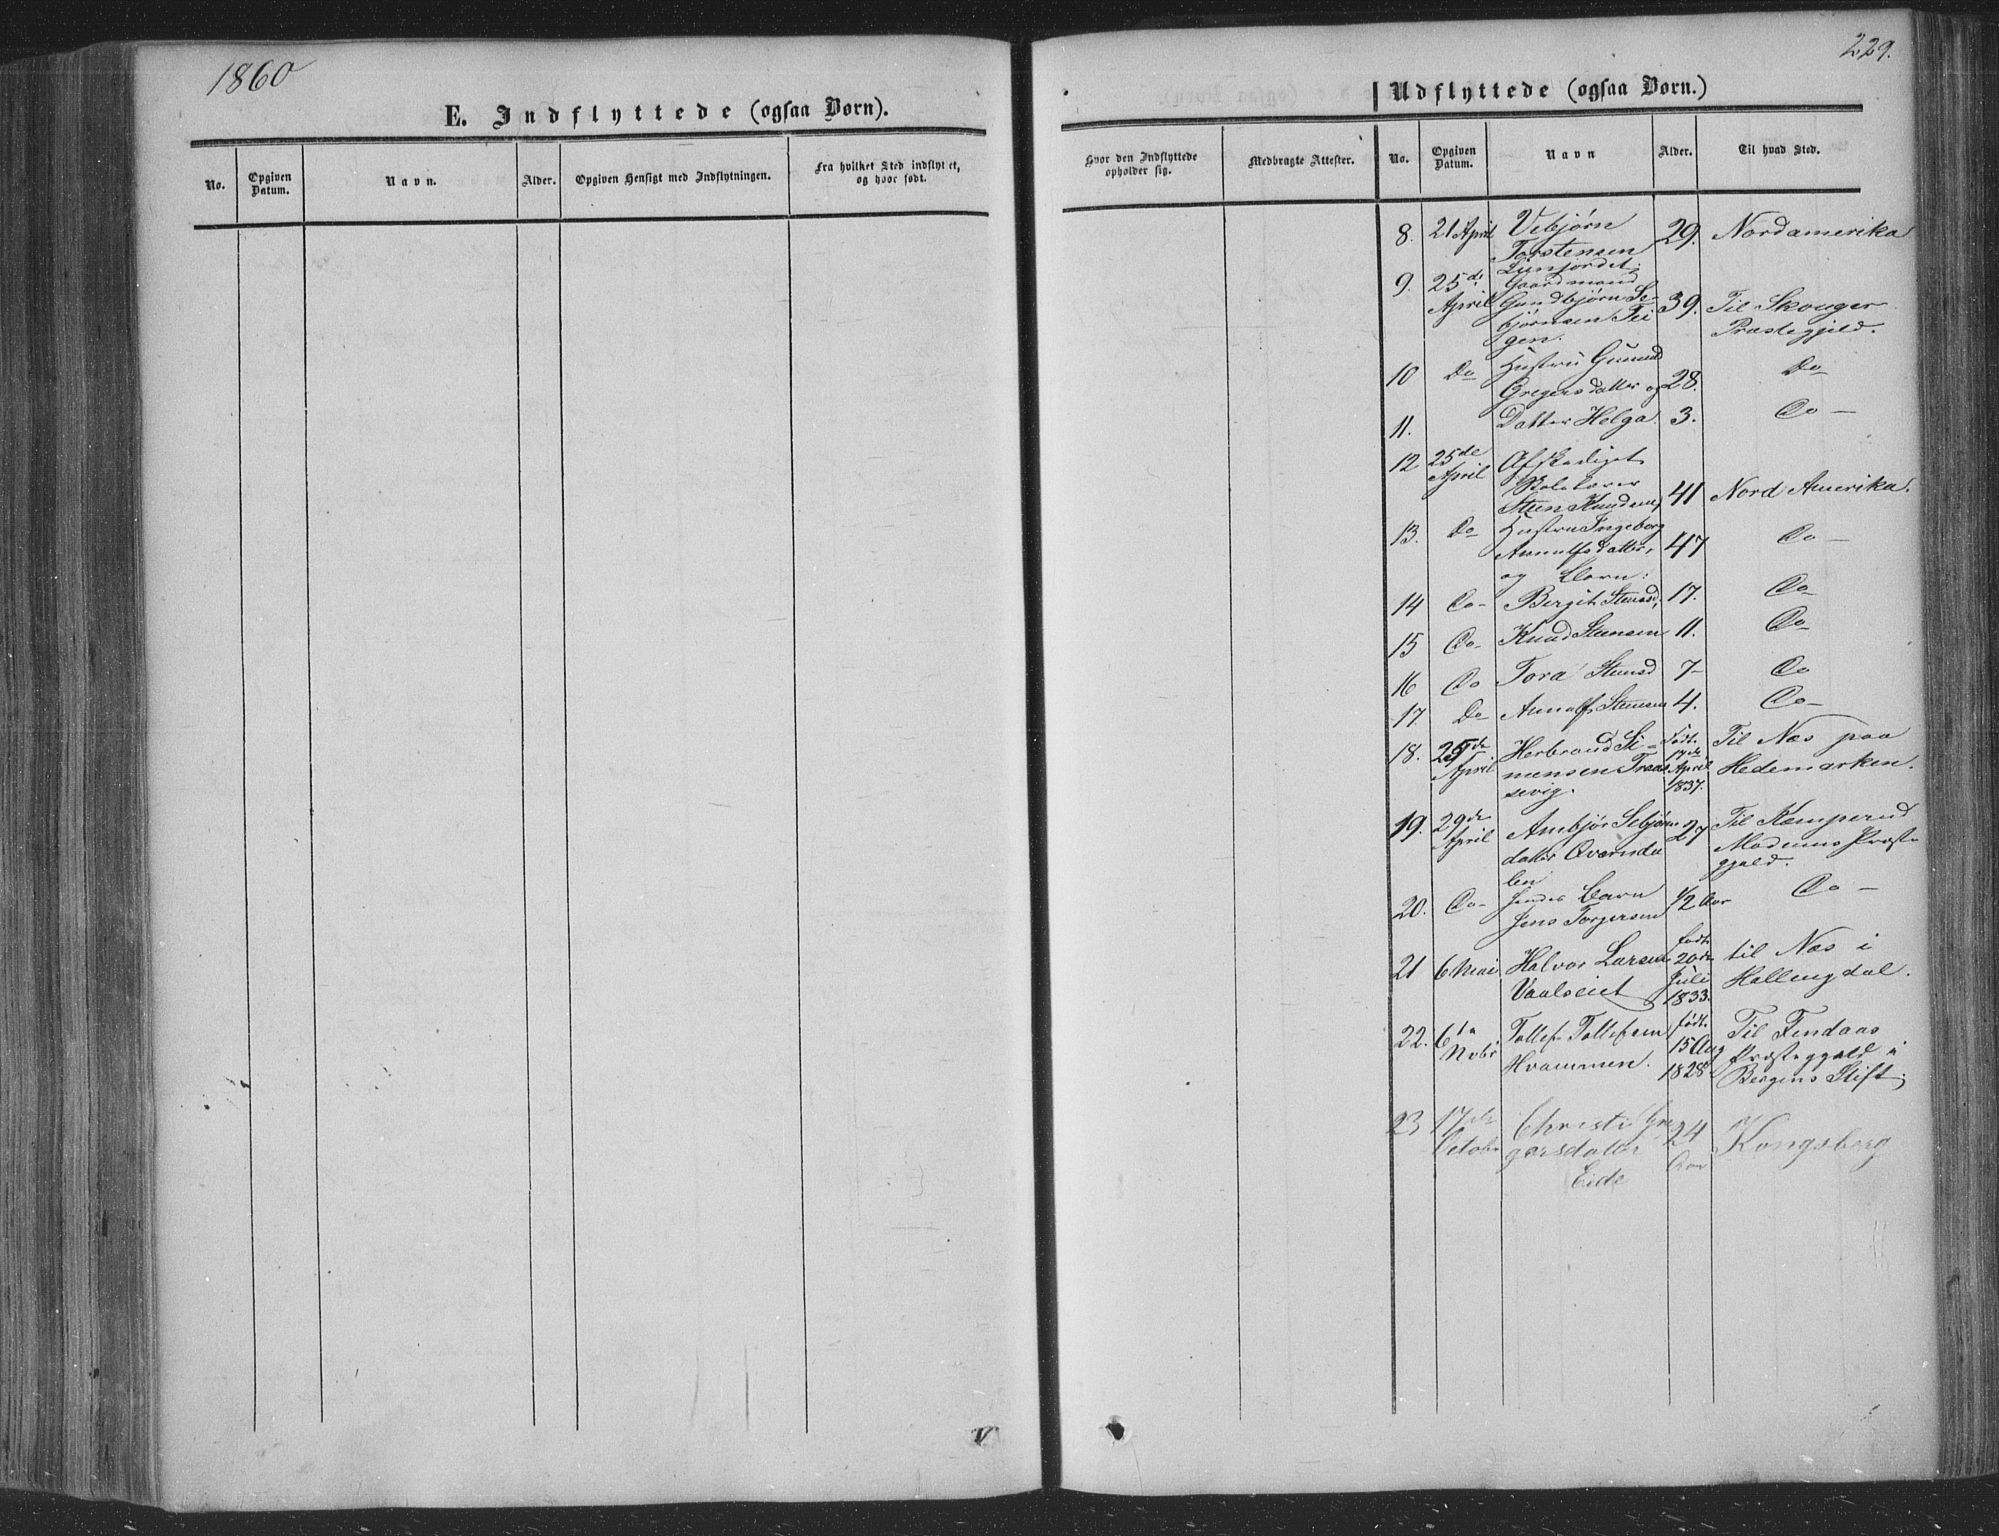 1860
229.
E. Indflyttede (ogsaa Børn).
Udflyttede (ogsaa Børn.)
No.
Opgiven Datum.
Navn.
Alder.
Opgiven Hensigt med Indflytningen.
Fra hvilket Sted indflyttet, og hvor født.
Hvor den Indflyttede opholder sig.
Medbragte Attester.
No.
Opgiven Datum.
Navn
Alder.
Til hvad Sted.
8. 21 April Vebjørn 29. Nordamerika
Torstensen
Lünjordet;
9. 25de Gaardmand
April Gundbjørn Se- 39. Til Skouger
bjørnsen Tei Præstegjeld.
gen.
10 Do Hustru Gunild Do
Gregersdatter og 28.
11. Datter Helga. 3. Do
12 25de Afskediget
April
Steen Knudsen, 41 Nord Amerika.
13. Do Hustru Ingeborg
Arnulfsdatter, 47 Do
og Børn:
14 Do Bergit Steensd, 17. Do
15 Do Knud Steensen 11. Do
16 Do Tora Steensd 7 Do
17. Do Arnulf Steensen 4. Do
18. 25de Herbrand Si- født Til Næs paa
April mensen Traas 17de April Hedemarken.
sevig. 1837.
19. 29de Ambjør Sebjørns 27 Til Kæmperud
April datter Qværnda Modums Præste
len gjeld.
20. Do hendes Barn 1/2 Aar Do
Jens Torgersen
21 6 Mai Halvor Larsen født 20de til Næs i
Vaalseiet Juli 1833. Hallingdal.
22. 6te Tollef Tollefsen født Til Findaas
Novbr Hvammen. 15 Aug Præstegjeld i
1828 Bergens Stift;
23 17de Christi Gre 24 Kongsberg
October gersdatter Aar
Eide